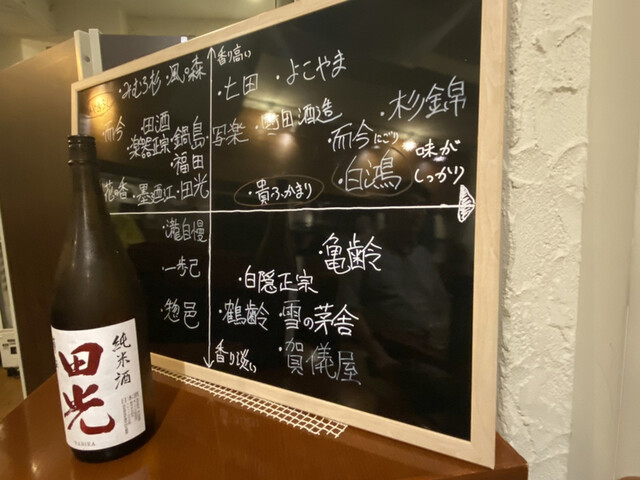 香り高い
・みむろ杉 ・風の森
・七田 ・よこやま
・杉錦
・而今 田酒
・楽器正宗 ・鍋島 ・写楽
福田
・町田酒造
・而今にごり
味が
しっかり
・白鴻
・花の香 ・墨廼江 ・田光
・貴ふかまり
・瀧自慢
・亀齢
・一歩己
・白隠正宗
・惣邑
・鶴齢 ・雪の茅舎
香り淡い
・賀儀屋
純米酒
田光
TABIKA